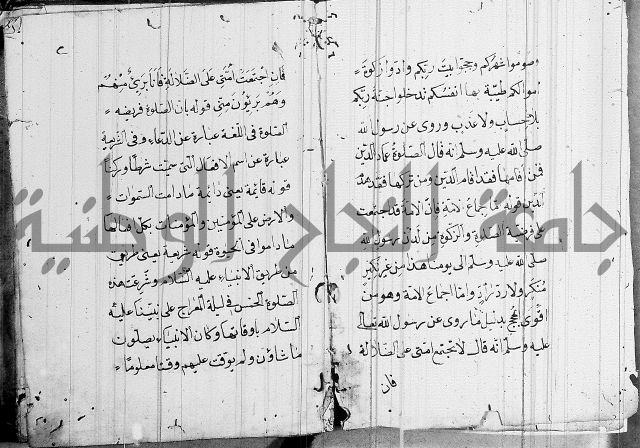 وصوموا شهركم وحجوا بيت ربكم وادوا زكوة
اموالكم طيبة بها انفسكم تدخلوا جنة ربكم
بلا حساب ولا عذاب وروى عن رسول الله
صلى الله عليه وسلم انه قال الصلوة عماد الدين
فمن اقامها فقد اقام الدين ومن تركها فقد هدم
الدين قوله اجماع الامة فان الامة قد اجتمعت
على فرضية الصلوة والزكوة من لدن رسول الله
صلى الله عليه وسلم الى يومنا هذا من غير نكير
منكر ولا رد راد واما اجماع الامة وهو من
اقوى الحجج بدليل ما روى عن رسول الله تعالى
عليه وسلم انه قال لا تجتمع امتى على الضلالة
فان
فان اجتمعت امتى على الضلالة فانا برئ منهم
وهم بريئون منى قوله بان الصلوة فريضة
الصلوة فى اللغة عبارة عن الدعاء وفى الشريعة
عبارة عن اسم الافعال التى سميت شرطا وركنا
قوله قائمة يعنى دائمة ما دامت السموات
والارض على المؤمنين والمؤمنات بكل
ما داموا فى الحيوة قوله شريعة يعنى طريقة
من طريق الانبياء عليه السلام وشرعت هذه
الصلوة الخمس فى ليلة المعراج على نبينا عليه
السلام باوقاتها وكان الانبياء يصلون
ما شاؤن ولم يوقت عليهم وقتا معلوما
جامعة النجاح الوطنية